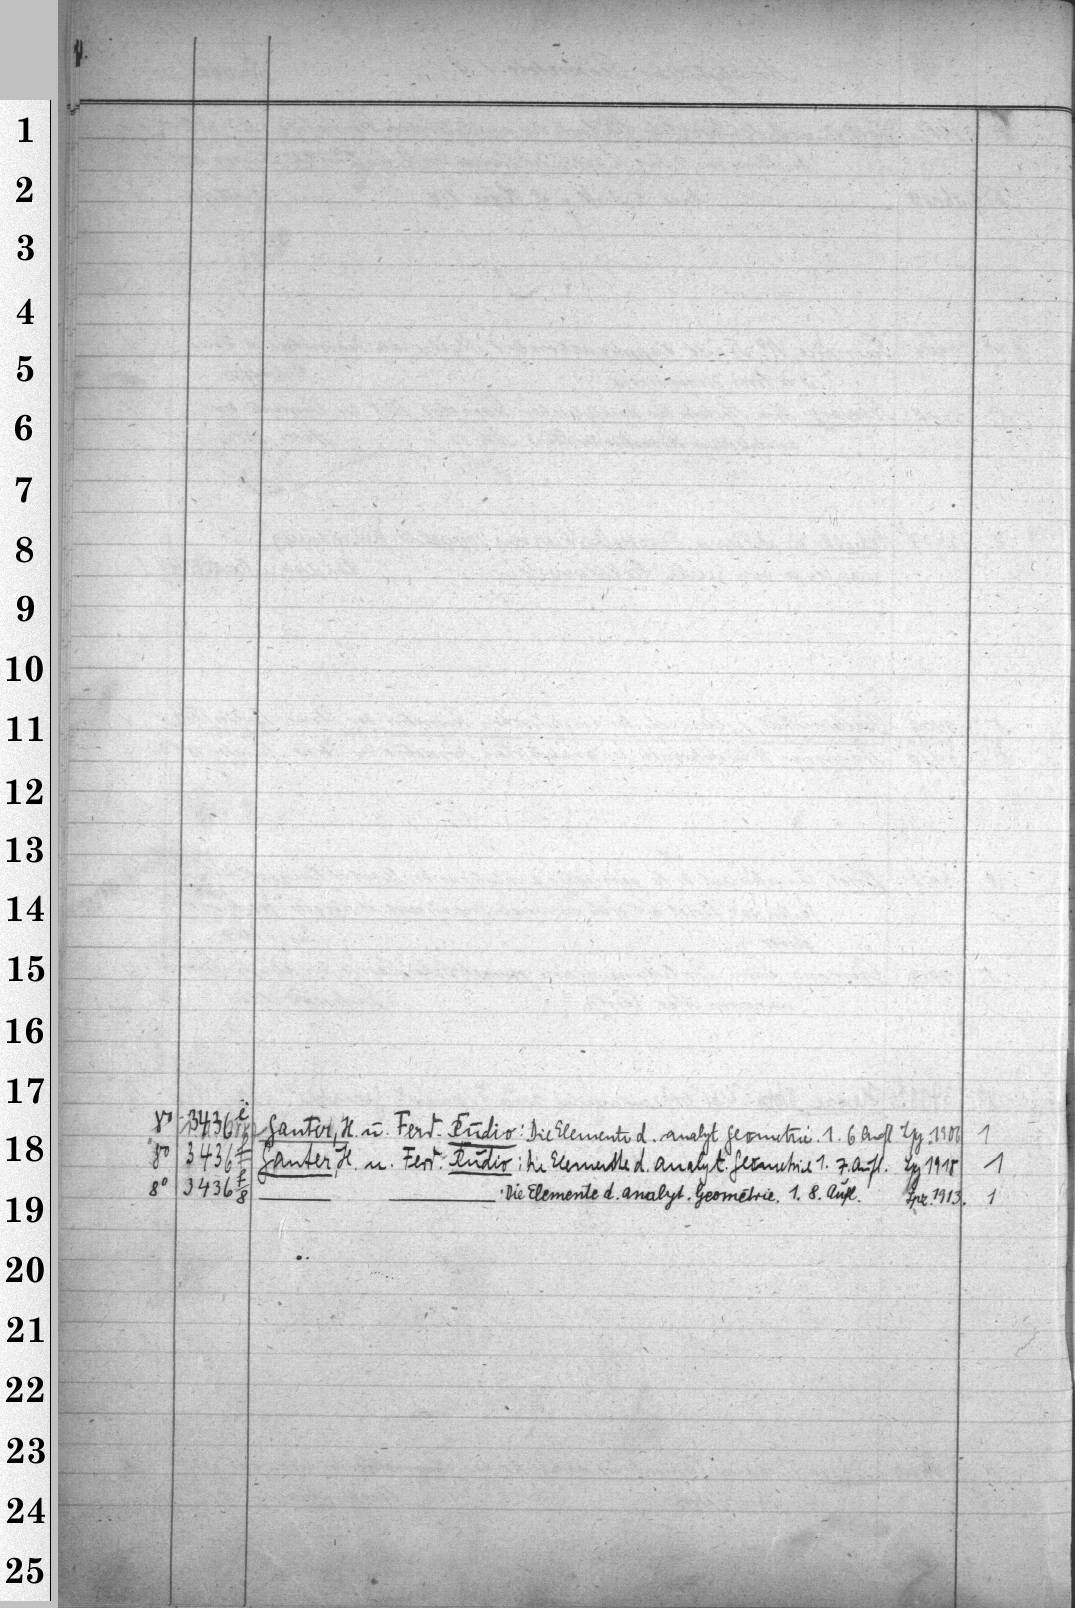 1
2
3
4
5
6
7
8
9
10
11
12
13
14
15
16
17
8° 3436 Ganter, H. u. Ferd. Rudio: Die Elemente d. analyt. Geometrie. 1. 6 Aufl Lpg. 1906 1
18
8° 3436 f/7 Ganter, H. u. Ferd. Rudio: Die Elemente d. analyt. Geometrie 1. 7. Aufl. Lpg 1918 1
8° 3436 f/8 : Die Elemente d. analyt. Geometrie. 1. 8. Aufl. Lpz. 1913. 1
19
20
21
22
23
24
25